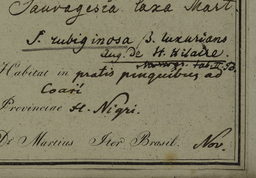 Sauvagesia laxa Mart.
S. rubiginosa β. luxurians
Aug. de St. Hilaire.
Habitat in pratis pinguibus ad
Coari
Provinciae R. Nigri.
De Martius Iter Brasil. Nov.